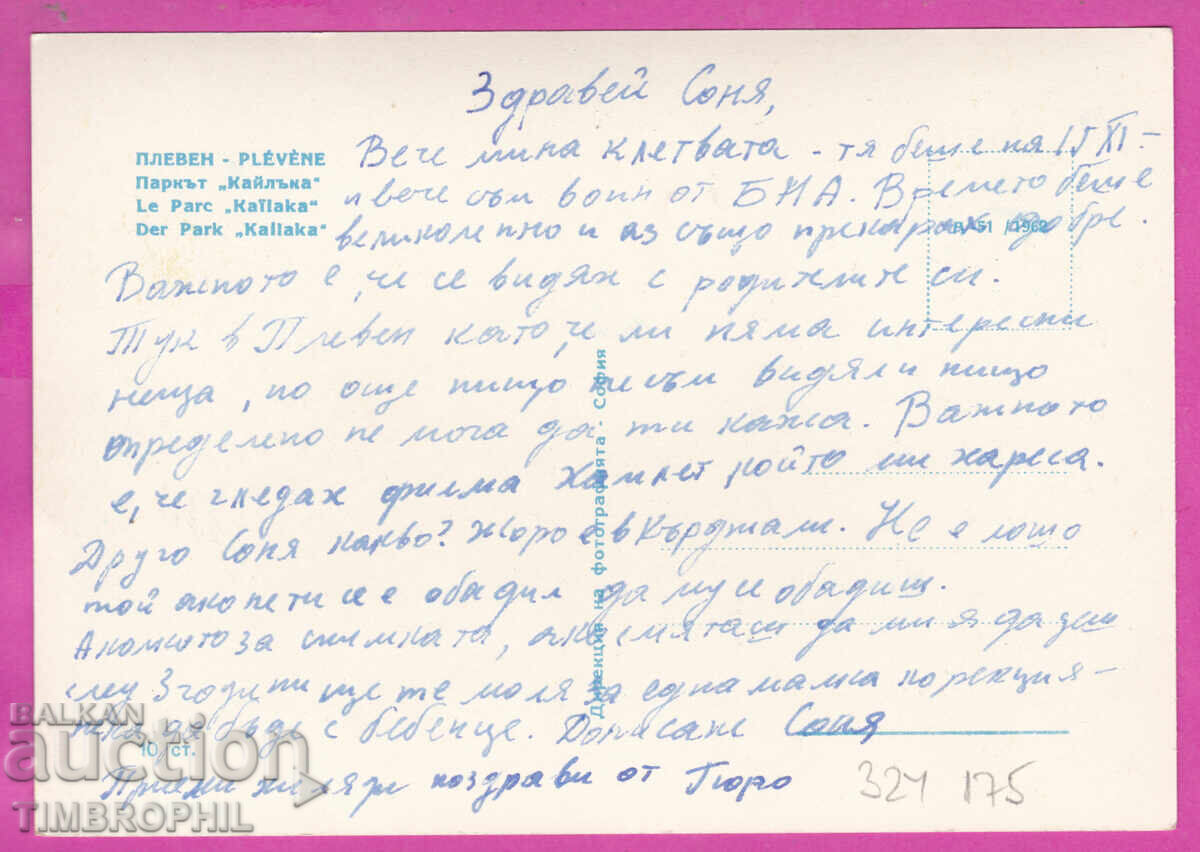 Здравей Соня,
ПЛЕВЕН - PLÉVÈNE
Паркът „Кайлъка“
Le Parc „Kaïlaka“
Der Park „Kailaka“
Вече мина клетвата - тя беше на 15 XI -
и вече съм воин от БНА. Времето беше
великолепно и аз също прекарах добре.
А 51 /1962
Важното е, че се видях с родителите си.
Тук в Плевен като, че ли няма интересни
неща, но още нищо не съм видял и нищо
определено не мога да ти кажа. Важното
е, че гледах филма Хамлет, който ми хареса.
Друго Соня какво? Жоро е в Кърджали. Не е лошо
той ако не ти се е обадил да му се обадиш.
А колкото за снимката, ако смяташ да ми я дадеш
след 3 години ще те моля за една малка корекция -
нека да бъде с бебенце. Дописане Соня
Приеми хиляди поздрави от Гюро
Дирекция на фотографията - София
10 ст.
324 175
BALKAN
auction
TIMBROPHIL